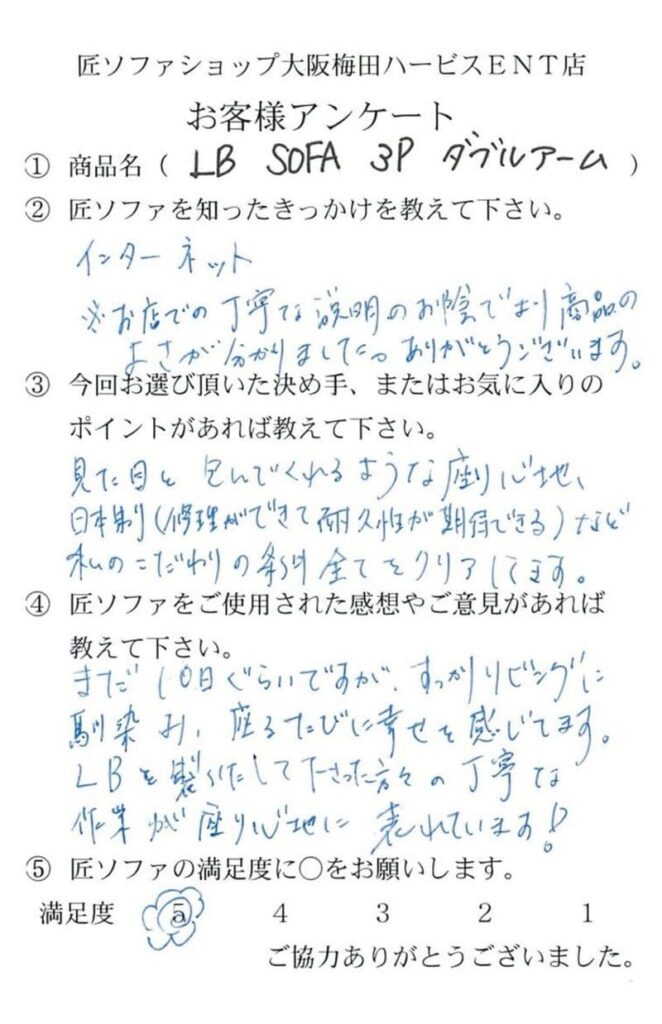 匠ソファショップ大阪梅田ハービスＥＮＴ店
お客様アンケート
① 商品名（ LB SOFA 3P ダブルアーム ）
② 匠ソファを知ったきっかけを教えて下さい。
インターネット
※お店での丁寧な説明のお陰でより商品の
よさが分かりました。ありがとうございます。
③ 今回お選び頂いた決め手、またはお気に入りの
ポイントがあれば教えて下さい。
見た目と包んでくれるような座り心地、
日本製(修理ができて耐久性が期待できる)など
私のこだわりの条件全てをクリアしてます。
④ 匠ソファをご使用された感想やご意見があれば
教えて下さい。
まだ10日ぐらいですが、すっかりリビングに
馴染み、座るたびに幸せを感じてます。
LBを製作して下さった方々の丁寧な
作業が座り心地に表れています!
⑤ 匠ソファの満足度に○をお願いします。
満足度 5 4 3 2 1
ご協力ありがとうございました。